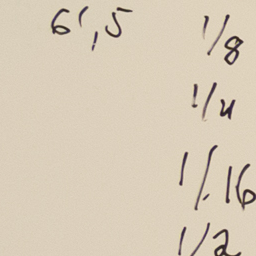 6',5
1/8
1/4
1/16
1/2